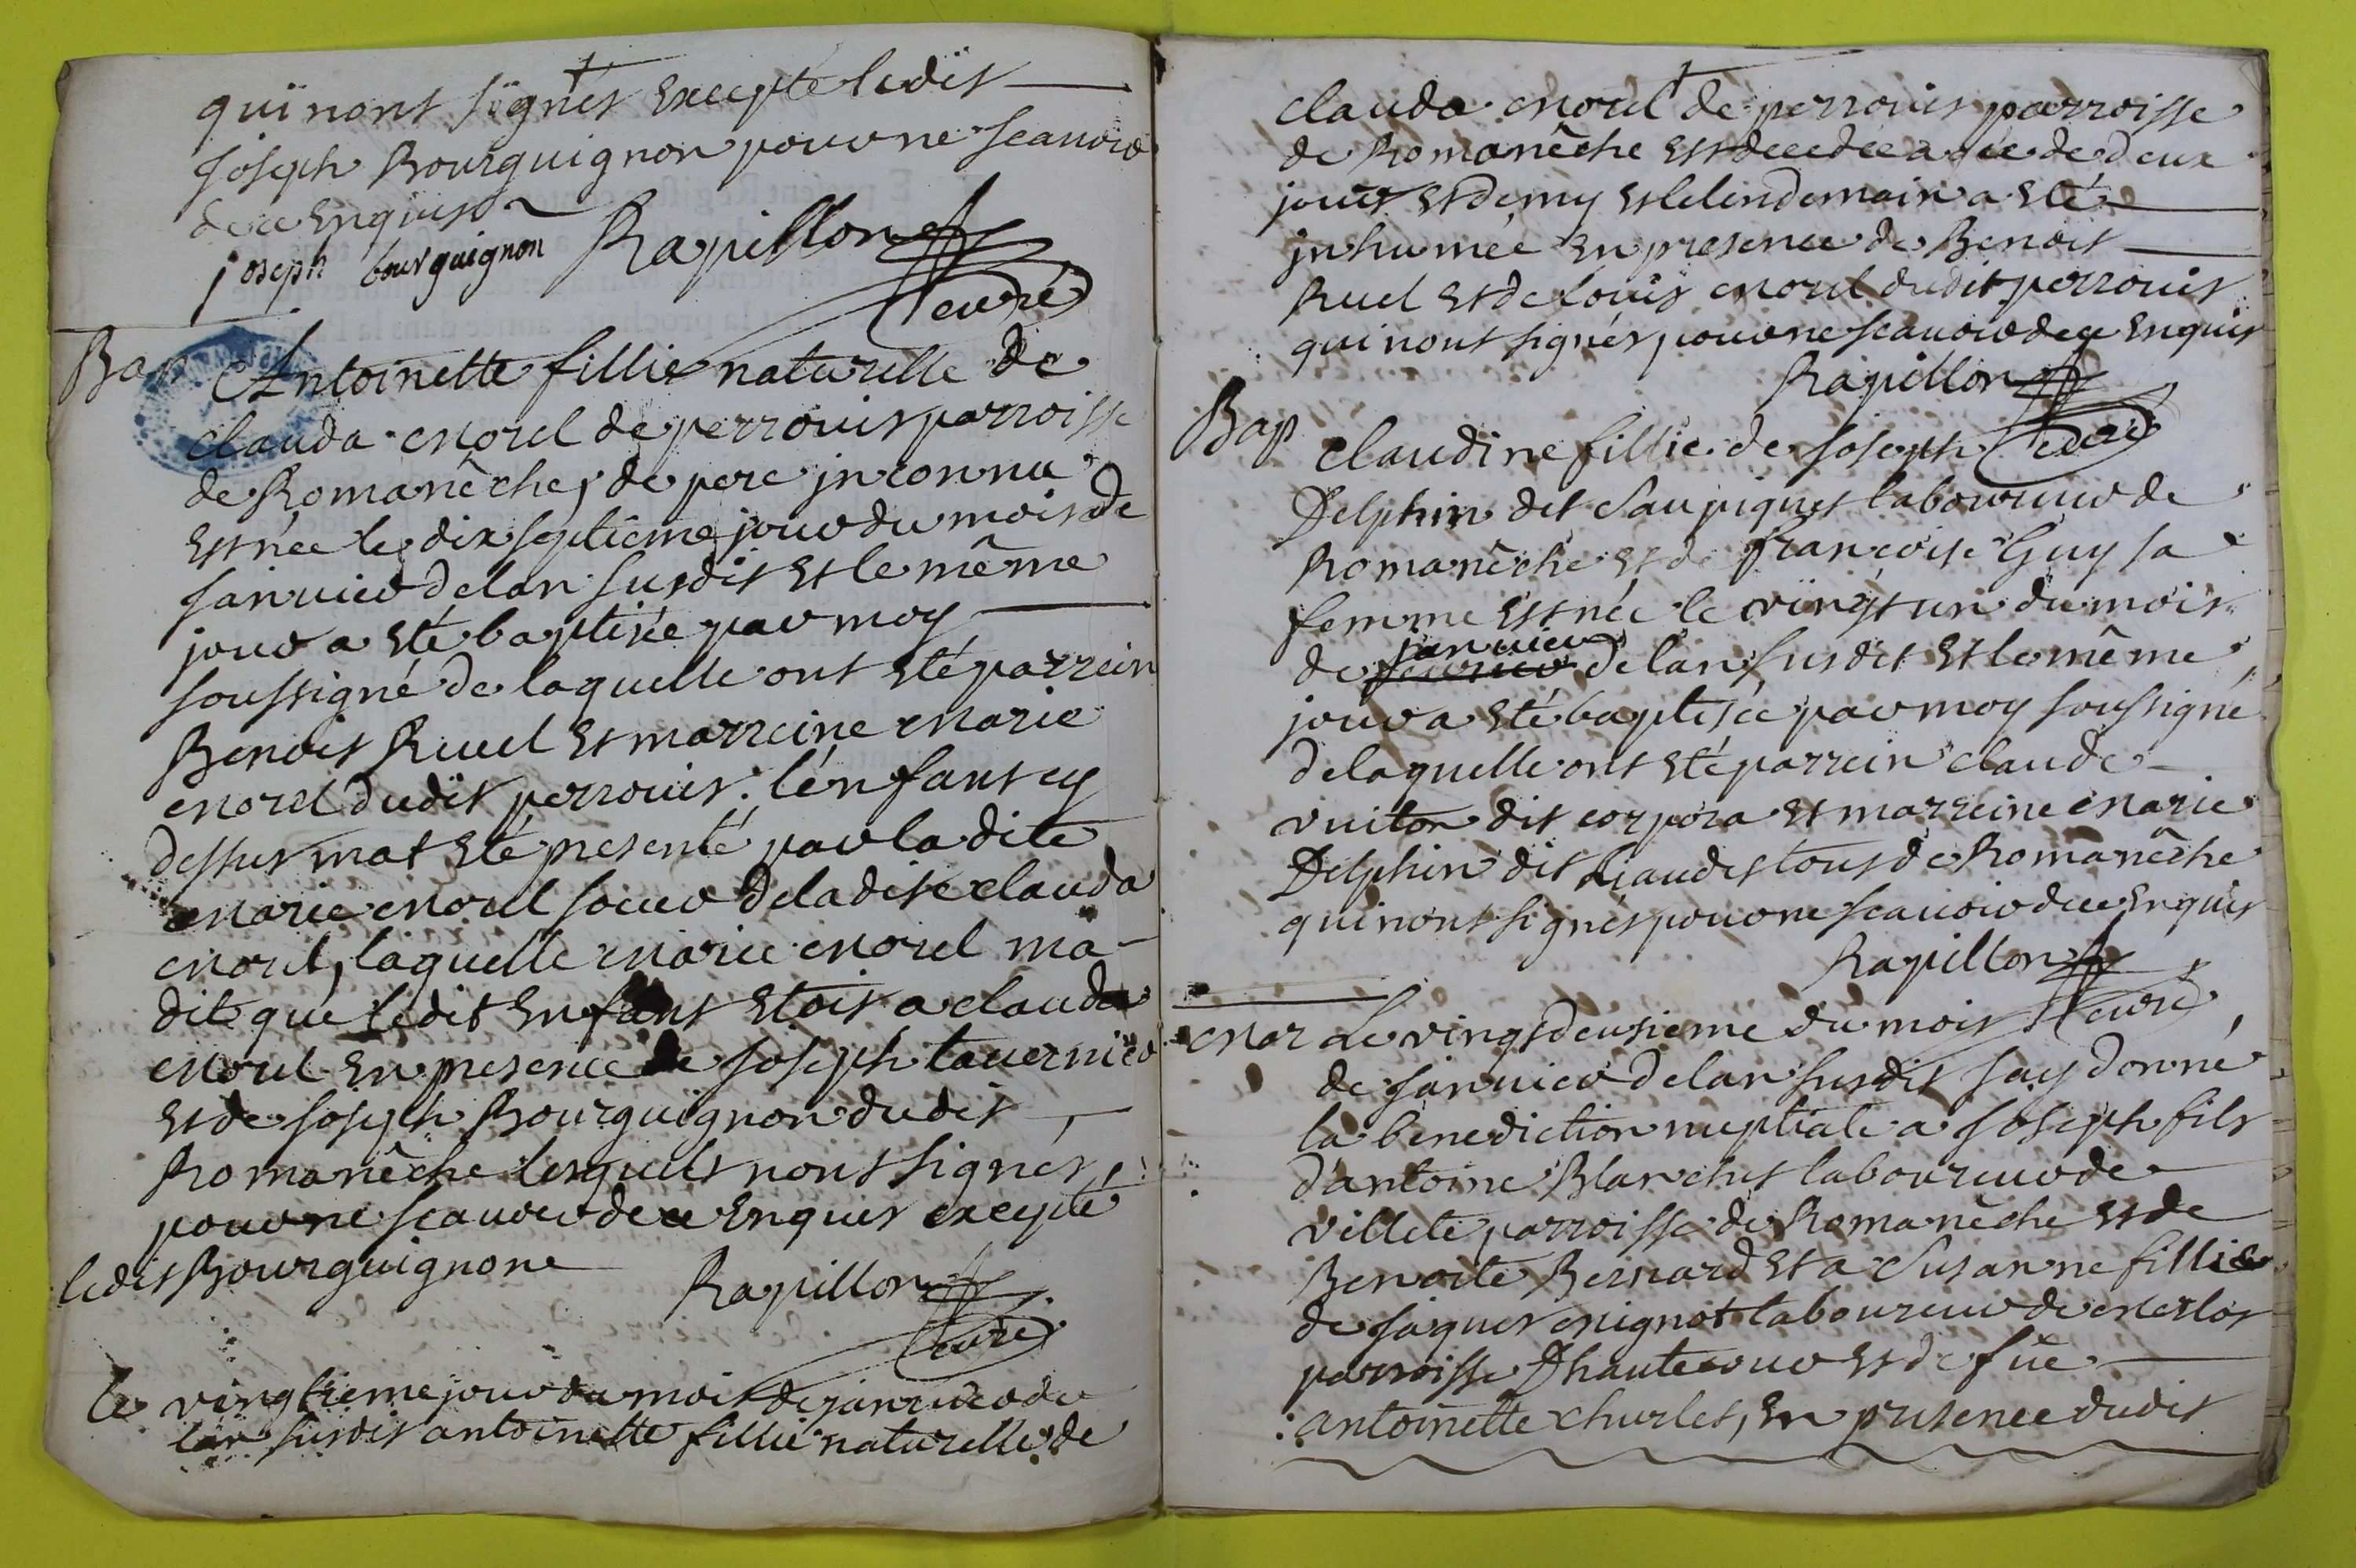 qui nont signés Excepté ledit
Joseph Bourguignon pour ne scauoir
de ce Enquis
joseph bourguignon Rapillon
curé
Bap Antoinette fillie naturelle de
clauda Morel de perrouis parroisse
de Romanêche, de pere jnconnu
Est née le dix septieme jour du mois de
Januier de lan susdit Et le même
jour a Eté baptisée par moy
soussigné de laquelle ont Eté parrein
Benoit Ruel Et marreine Marie
Morel dudit perrouis. l'énfant cy
dessus mat Eté presenté par la dite
Marie Morel soeur de la dite clauda
Morel, laquelle Marie Morel ma
dit que ledit Enfant Etoit a clauda
Morel En presence de Joseph tauernier
Et de Joseph Bourguignon dudit
Romanêche lesquels nont signés,
pour ne scauoir de ce Enquis excepté
ledit Bourguignone
Rapillon
curé
le vingtieme jour du mois de januier de
lan susdit antoinette fillie naturelle de
clauda Morel de perrouis parroisse
de Romanêche Est decedée agée de deux
jours Et demy Et le lendemain a Eté
jnhumée En presence de Benoit
Ruel Et de Louis Morel dudit perrouis
qui nont signés pour ne scauoir de ce Enquis
Rapillon
Bap claudine fillie de Joseph curé
Delphin dit Saupiquet laboureur de
Romanêche Et de francoise Guy sa
femme Est née le vingt un du mois
januier
de feurier de lan susdit Et le même
jour a Eté baptisée par moy soussigné
de laquelle ont Eté parrein claude
vuiton dit corpora Et marreine Marie
Delphin dit Gaudet tous de Romanêche
qui nont signés pour ne scauoir de ce Enquis
Rapillon
Mar Le vingt deusieme du mois curé
de Januier de lan susdit Jay donné
la benediction nuptiale a Joseph fils
d'antoine Blanchet laboureur de
villete parroisse de Romanêche Et de
Benoite Bernard Et a Susanne fillie
de Jaques Mignot laboureur de Merlos
parroisse Dhautecour Et de füe
antoinette churlet, En presence dudit